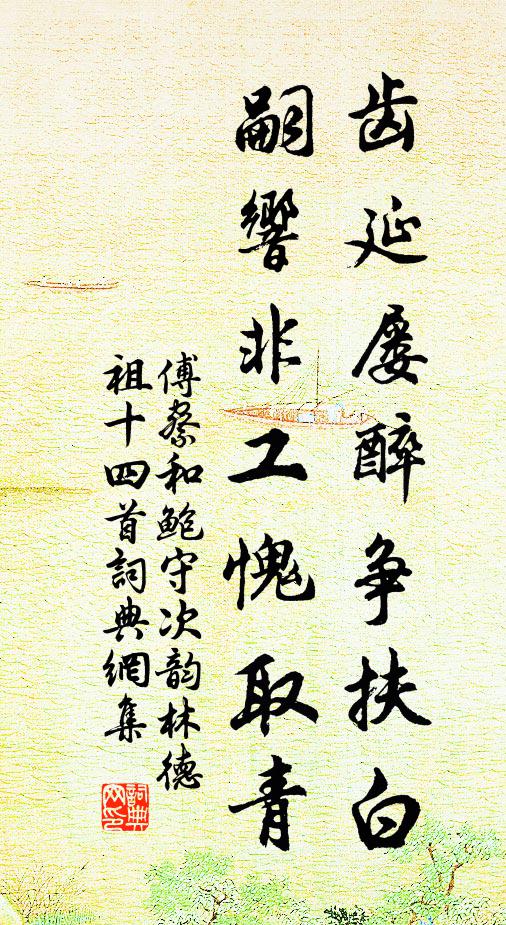 齿延屡醉争扶白
嗣響非工愧取青
傅察和鲍守次韵林德
祖十四首詞典網集
詞典
网印